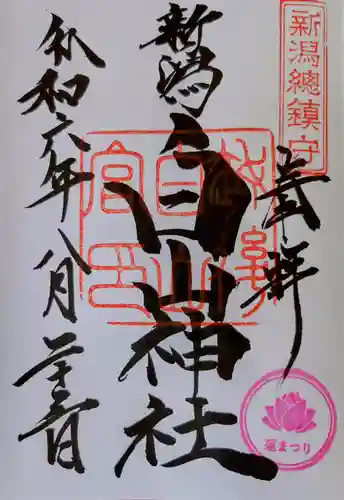 新潟總鎮守
奉拝
新潟
白山神社
令和六年八月
白山
宮印
蓮まつり